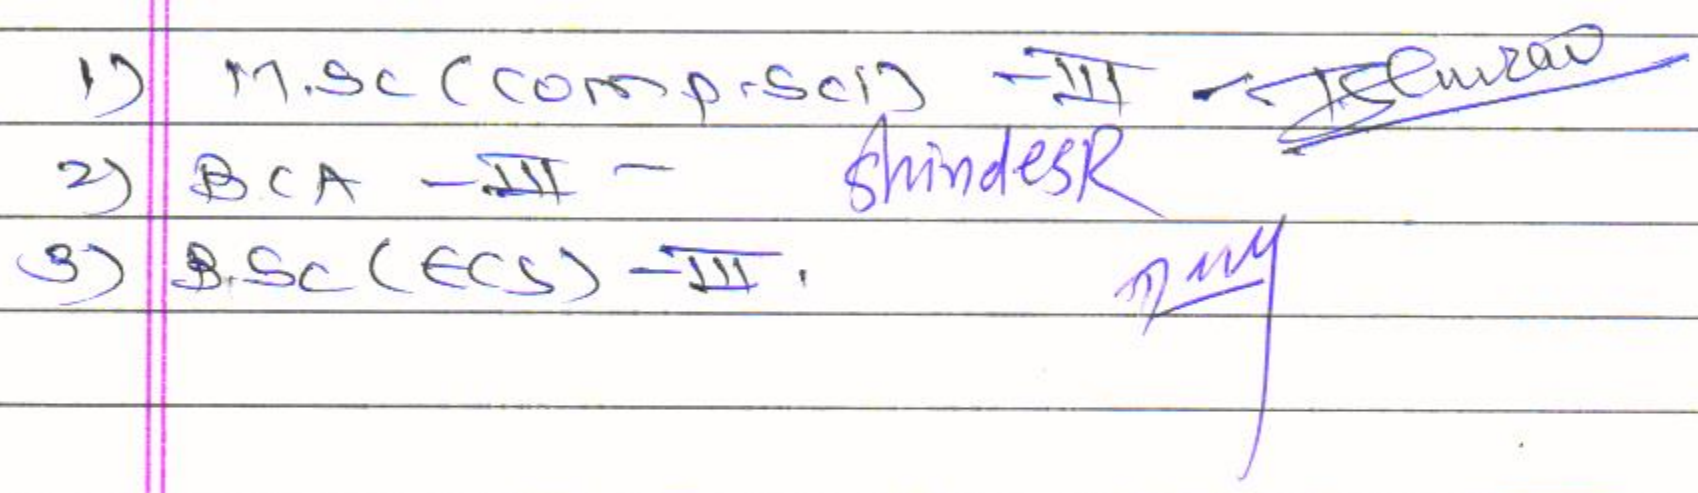 1) M.Sc (comp.sci) - III -
2) BCA - III - ShindeSR
3) B.Sc (ECS) - III .